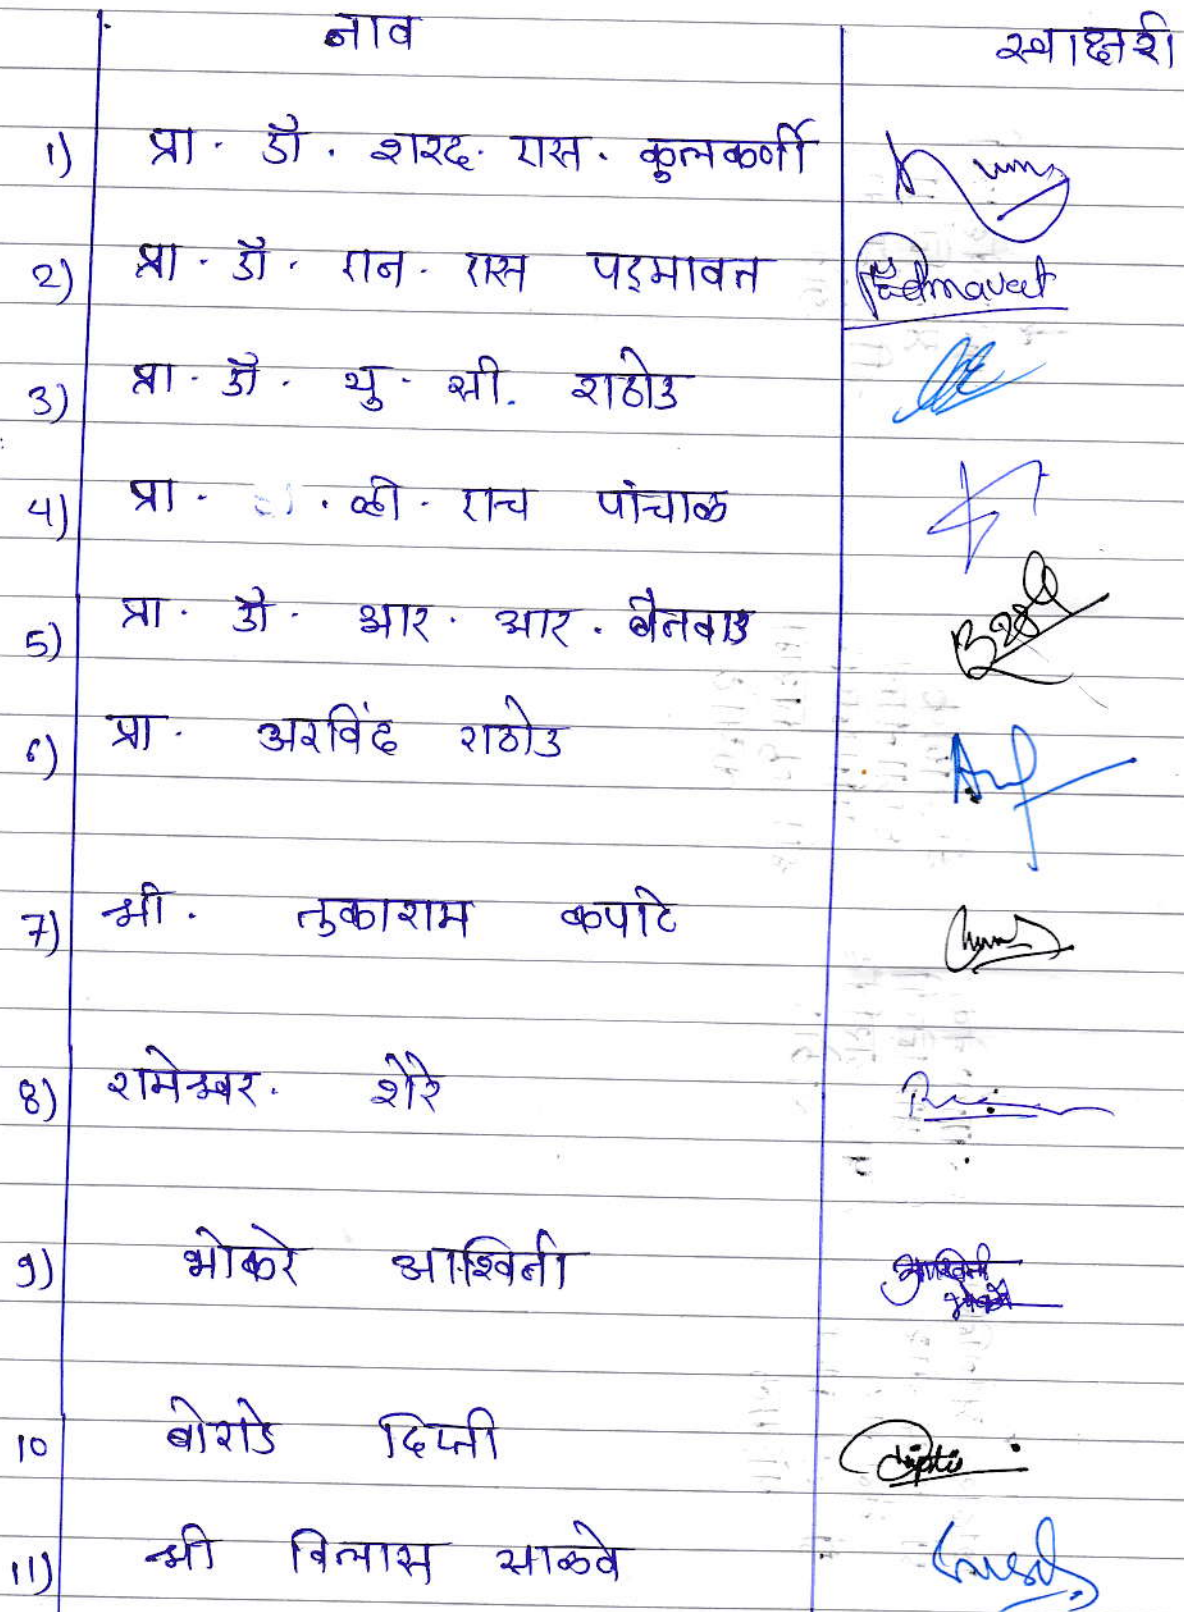 नाव स्वाक्षरी
1) प्रा. डॉ. शरद. एस. कुलकर्णी
2) प्रा. डॉ. एन. एस पद्मावत Padmavat
3) प्रा. डॉ. यु. सी. राठोड
4) प्रा. . व्ही. एच पांचाळ
5) प्रा. डॉ. आर. आर. बैनवाड
6) प्रा. अरविंद राठोड
7) श्री. तुकाराम कपाटे
8) रामेश्वर. शेरे
9) भोकरे आश्विनी आश्विनी
भोकरे
10 बोराडे दिप्ती dipti
11) श्री विलास साळवे